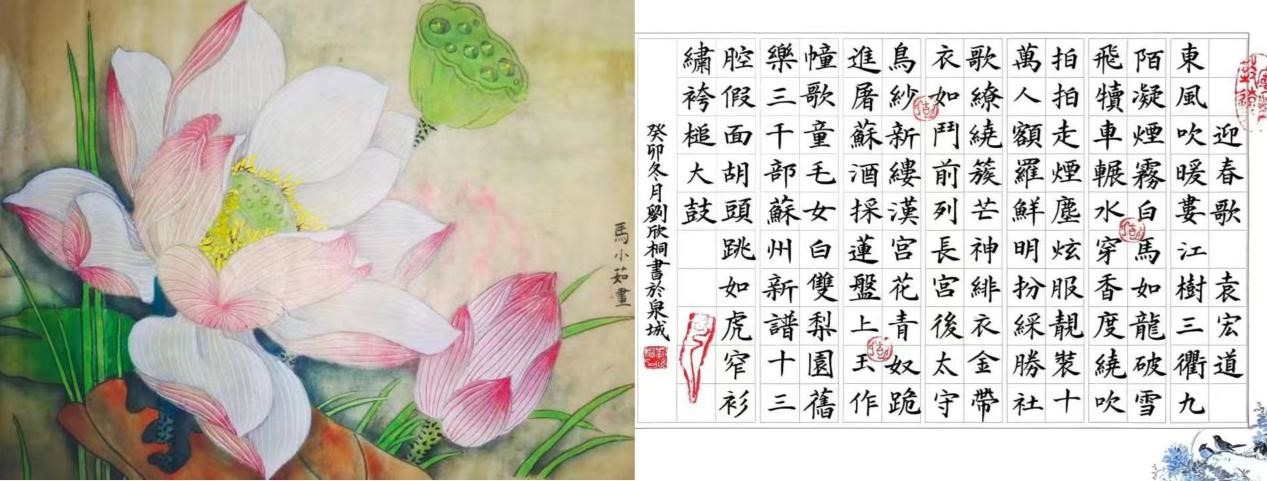 馬小茹畫
迎春歌 袁宏道
東風吹暖婁江樹三衢九
陌凝煙霧白馬如龍破雪
飛犢車輾水穿香度繞吹
拍拍走煙塵炫服靚裝十
萬人額羅鮮明扮綵勝社
歌繚繞簇芒神緋衣金帶
衣如鬥前列長宮後太守
鳥紗新縷漢宮花青奴跪
進屠蘇酒採蓮盤上玉作
幢歌童毛女白雙梨園舊
樂三千部蘇州新譜十三
腔假面胡頭跳如虎窄衫
繡袴槌大鼓
癸卯冬月劉欣桐書於泉城